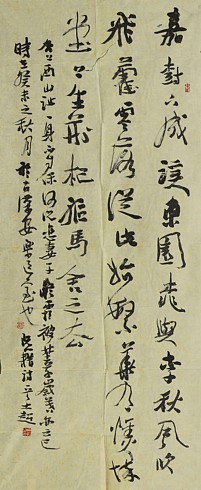 嘉樹下成蹊東園桃與李秋風吹
飛藿零落從此始繁華有憔悴
堂上生荊杞驅馬舍之去
去上西山趾一身不自保何況戀妻子凝霜被野草歲暮亦云已
時在癸未之秋月於古長安 也 阮籍詩